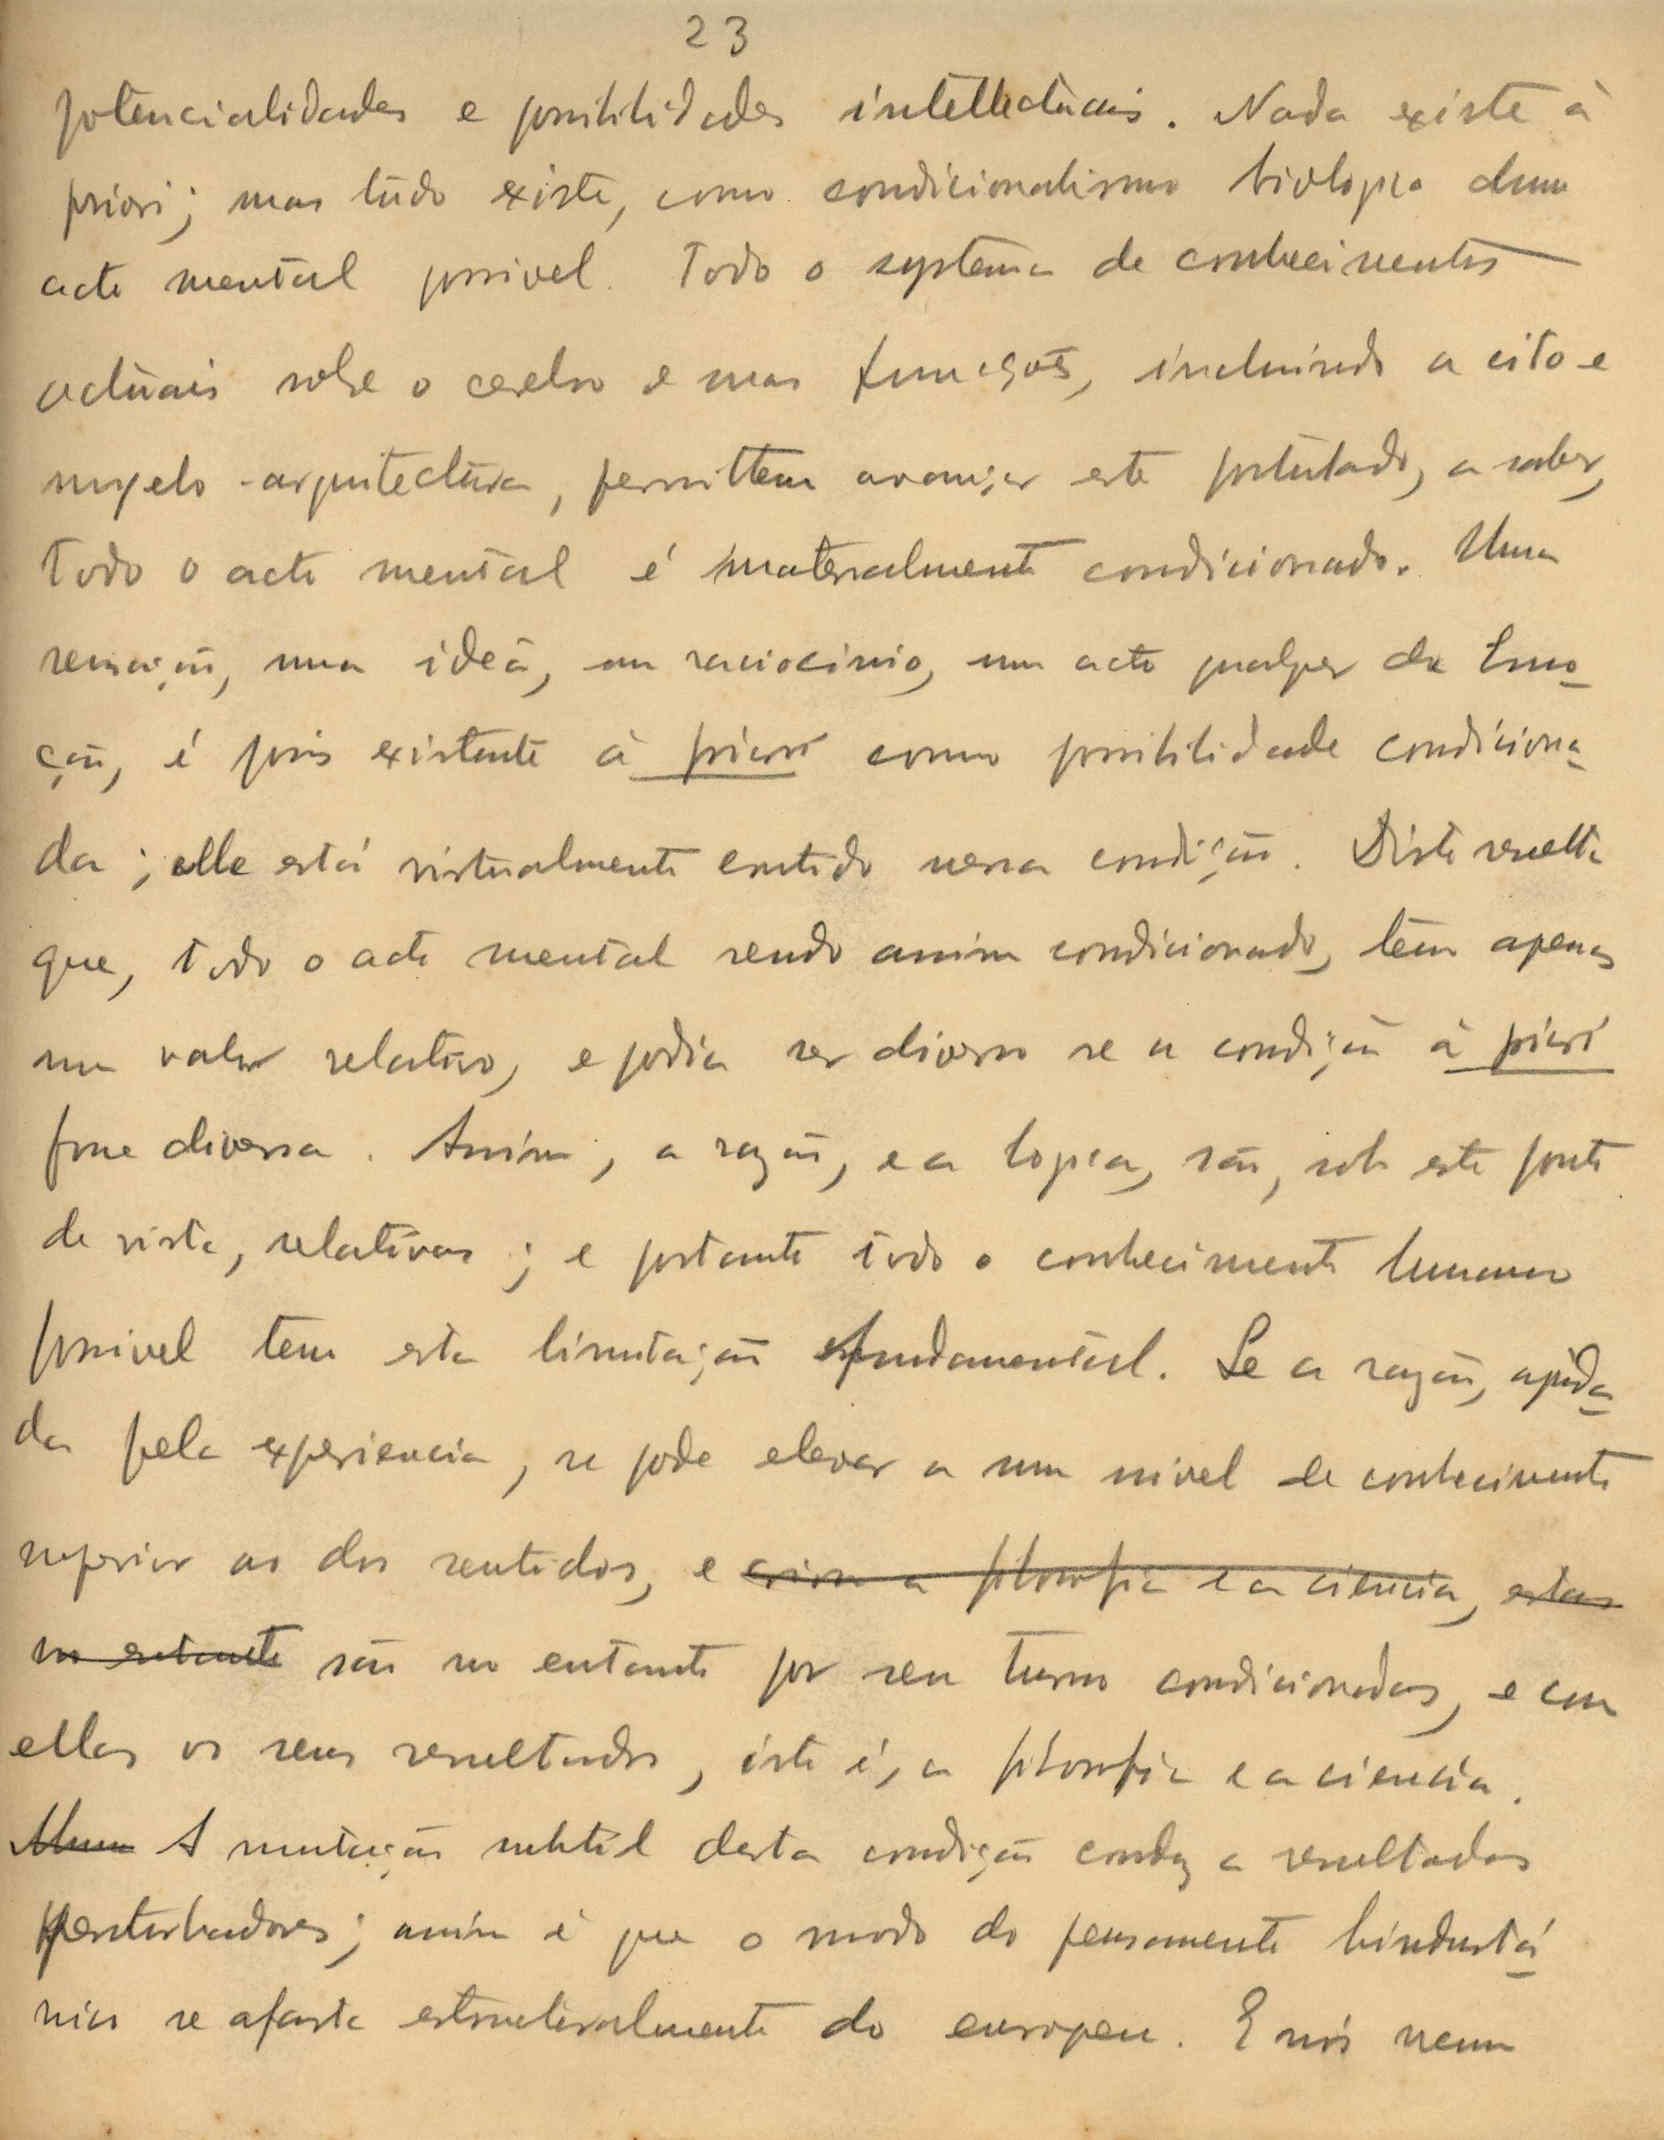 23
potencialidades e possibilidades intellectuais. Nada existe à
priori; mas tudo existe, como condicionalismo biologico dum
acto mental possivel. Todo o systema de conhecimentos
actuais sobre o cerebro e suas funcções, incluindo a cito e
myelo-arquitectura, permittem avançar este postulado, a saber,
todo o acto mental é materialmente condicionado. Uma
sensação, uma ideà, um raciocinio, um acto qualquer da Emo-
ção, é pois existente à priori como possibilidade condiciona-
da; elle está virtualmente contido nessa condição. Disto resulta
que, todo o acto mental sendo assim condicionado, tem apenas
um valor relativo, e podia ser diverso se a condição à priori
fosse diversa. Assim, a razão, e a logica, são, sob este ponto
de vista, relativas; e portanto todo o conhecimento humano
possivel tem esta limitação fundamental. Se a razão, ajuda-
da pela experiencia, se pode elevar a um nivel de conhecimento
superior ao dos sentidos, e criar a filosofia e a ciencia, estas
no entanto são no entanto por seu turno condicionadas, e com
ellas os seus resultados, isto é, a filosofia e a ciencia.
Uma A mutação subtil desta condição conduz a resultados
perturbadores; assim é que o modo do pensamento hindustá-
nico se afasta estructuralmente do europeu. E nós nem